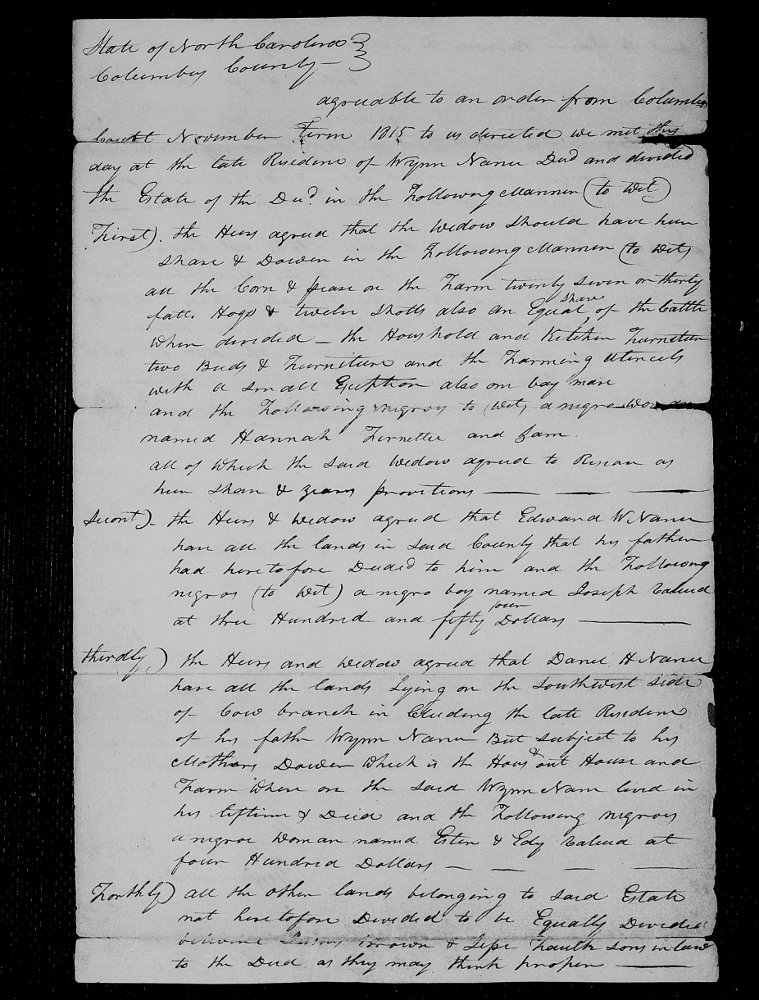 State of North Carolina
Columbus County
agreable to an order from Columbus
Court November Term 1815 to us directed we met this
day at the late Residence of Wynn Nance Decd and divided
the Estate of the Decd. in the Following Manner (to wit)
First). the Heirs agreed that the Widow should have her
share & Dower in the Following Manner (to wit)
all the Corn & pease on the Farm twenty seven or thirty
fatt. Hogs & twelve Shotts also an Equal share of the Cattle
when divided - the Houshold and Kitchen Furneture
two Beds & Furniture and the Farming utencels
with a small also one bay mare
and the Following negroes to (wit) a negro woman
named Hannah and
all of which the said Widow agreed to as
her share & years provitions
Second) - the Heirs & Widow agreed that Edward W. Nance
have all the lands in said County that his father
had heretofore Deeded to him and the Following
negros (to wit) a negro boy named Joseph Valued
at three Hundred and fifty four Dollars
thirdly) the Heirs and Widow agreed that Daniel H Nance
have all the lands Lying on the Southwest side
of Cow branch in Cluding the late Residence
of his father Wynn Nance But subject to his
Mothers Dower which is the House & out House and
Farm where on the said Wynn Nance lived in
his liftime & Died and the Following negroes
a negroe woman named Ester & Edy Valued at
four Hundred Dollars
Forthly) all the other lands belonging to said Estate
not heretofore Devided to be Equally Devided
between Brown & sons in law
to the Decd as they may think proper